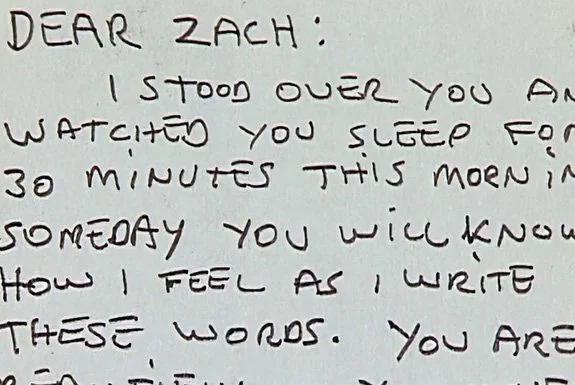 DEAR ZACH:
I STOOD OVER YOU AN
WATCHED YOU SLEEP FOR
30 MINUTES THIS MORNIN
SOMEDAY YOU WILL KNOW
HOW I FEEL AS I WRITE
THESE WORDS. YOU ARE